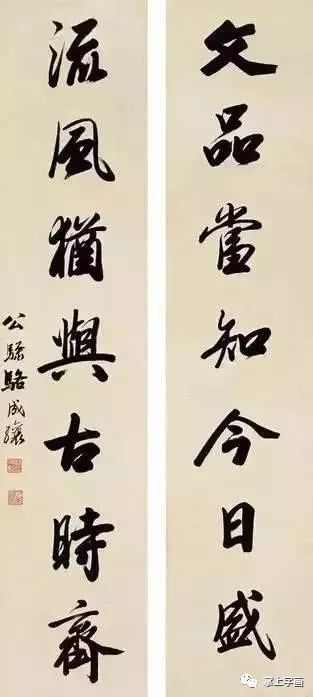 文品當知今日盛
流風猶與古時齊
公驌駱成驤
掌上字画